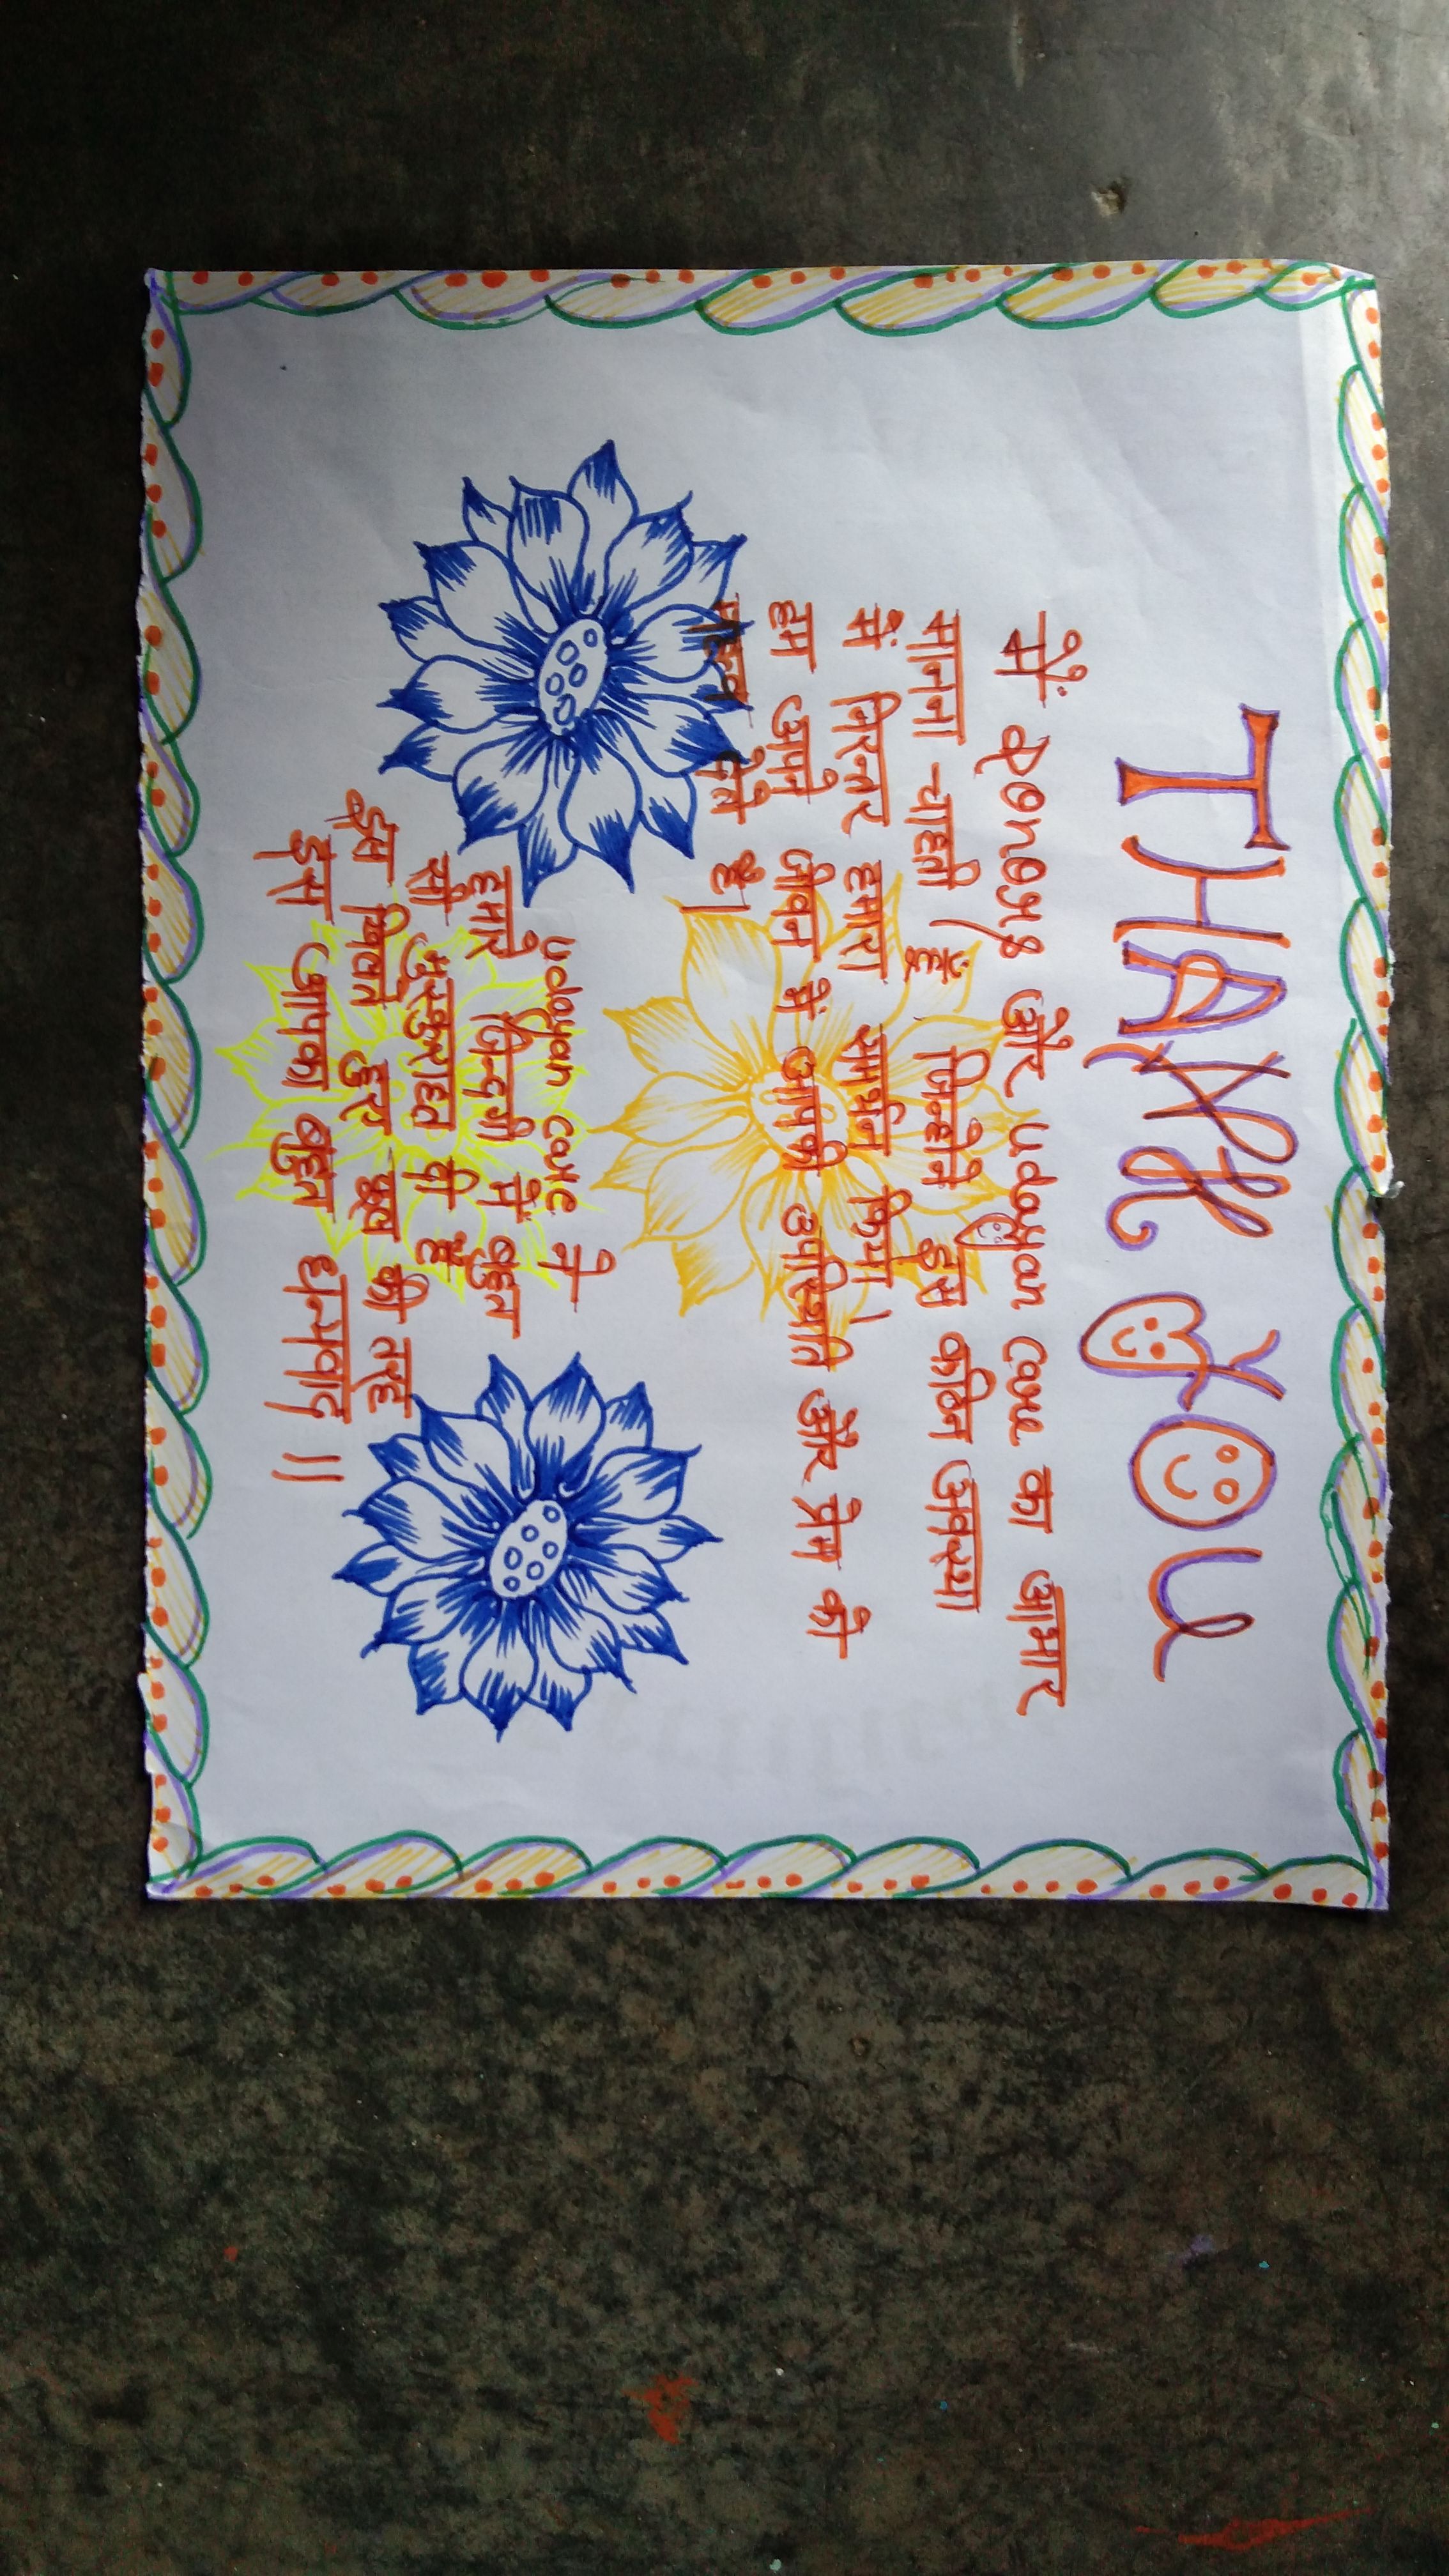 THANK YOU
मैं Donors और Udayan Care का आभार
मानना चाहती हूँ जिन्होंने इस कठिन अवस्था
में निरन्तर हमारा साथ दिया।
हम अपने जीवन में आपकी उपस्थिति और प्रेम को
महत्व देते है।
Udayan Care ने
हमारे जिन्दगी में बहुत
सी मुस्कुराहत दी है
इस खिलते हुए फूल की तरह
इस आपका बहुत धन्यवाद ||